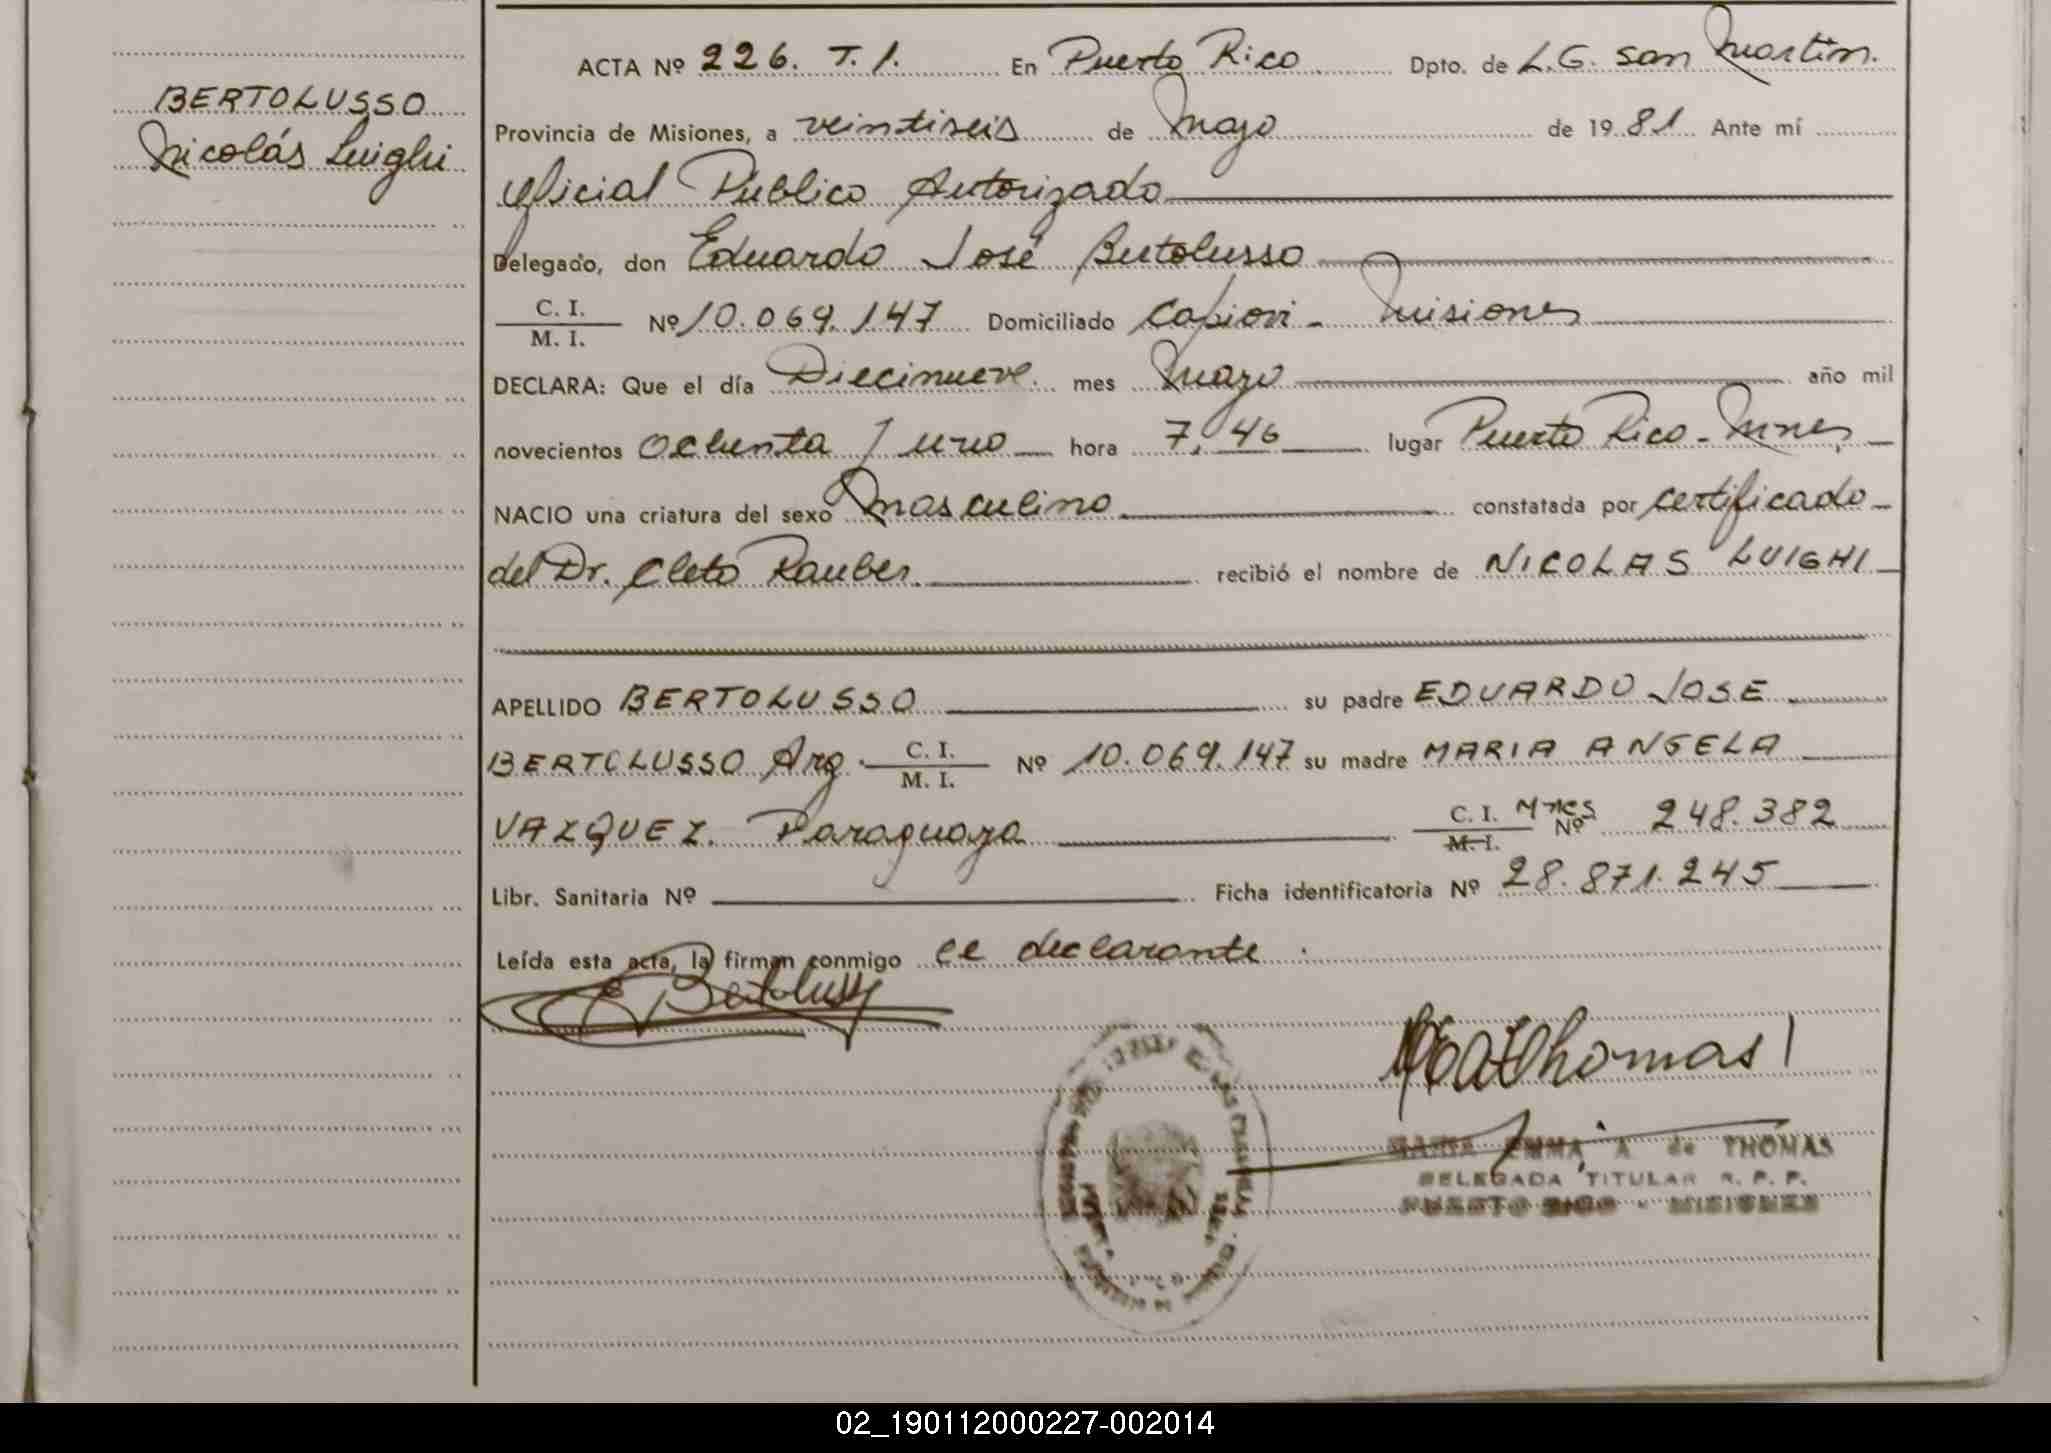 BERTOLUSSO
Nicolás Luighi
ACTA Nº 226. T. 1. En Puerto Rico Dpto. de L.G. San Martin.
Provincia de Misiones, a veintiseis de Mayo de 1981 Ante mí
Oficial Publico Autorizado
Delegado, don Eduardo José Bertolusso
C. I.
M. I. Nº 10.069.147 Domiciliado Capiovi - Misiones
DECLARA: Que el día Diecinueve mes Mayo año mil
novecientos ochenta y uno hora 7,46 lugar Puerto Rico - Mnes
NACIO una criatura del sexo Masculino constatada por certificado
del Dr. Cleto Rauber. recibió el nombre de NICOLAS LUIGHI
APELLIDO BERTOLUSSO su padre EDUARDO JOSE
BERTOLUSSO Arg. C. I.
M. I. Nº 10.069.147 su madre MARIA ANGELA
VAZQUEZ. Paraguaya C. I. Mnes
M. I. Nº 248.382
Libr. Sanitaria Nº Ficha identificatoria Nº 28.871.245
Leída esta acta, la firman conmigo el declarante.
E Bertolusso
Thomas
MARIA EMMA A de THOMAS
DELEGADA TITULAR R. P. P.
PUERTO RICO - MISIONES
02_190112000227-002014